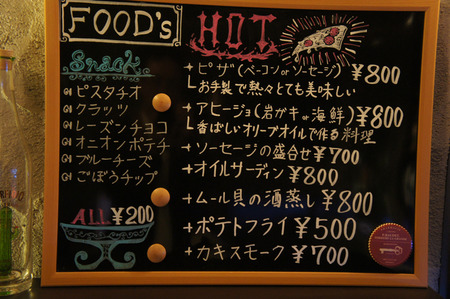 FOOD's
Snack
ピスタチオ
クラッツ
レーズンチョコ
オニオンポテチ
ブルーチーズ
ごぼうチップ
ALL ¥200
HOT
ピザ(ベーコンorソーセージ) ¥800
お手製で熱々とても美味しい
アヒージョ(岩ガキor海鮮) ¥800
香ばしいオリーブオイルで作る料理
ソーセージの盛合せ ¥700
オイルサーディン ¥800
ムール貝の酒蒸し ¥800
ポテトフライ ¥500
カキスモーク ¥700